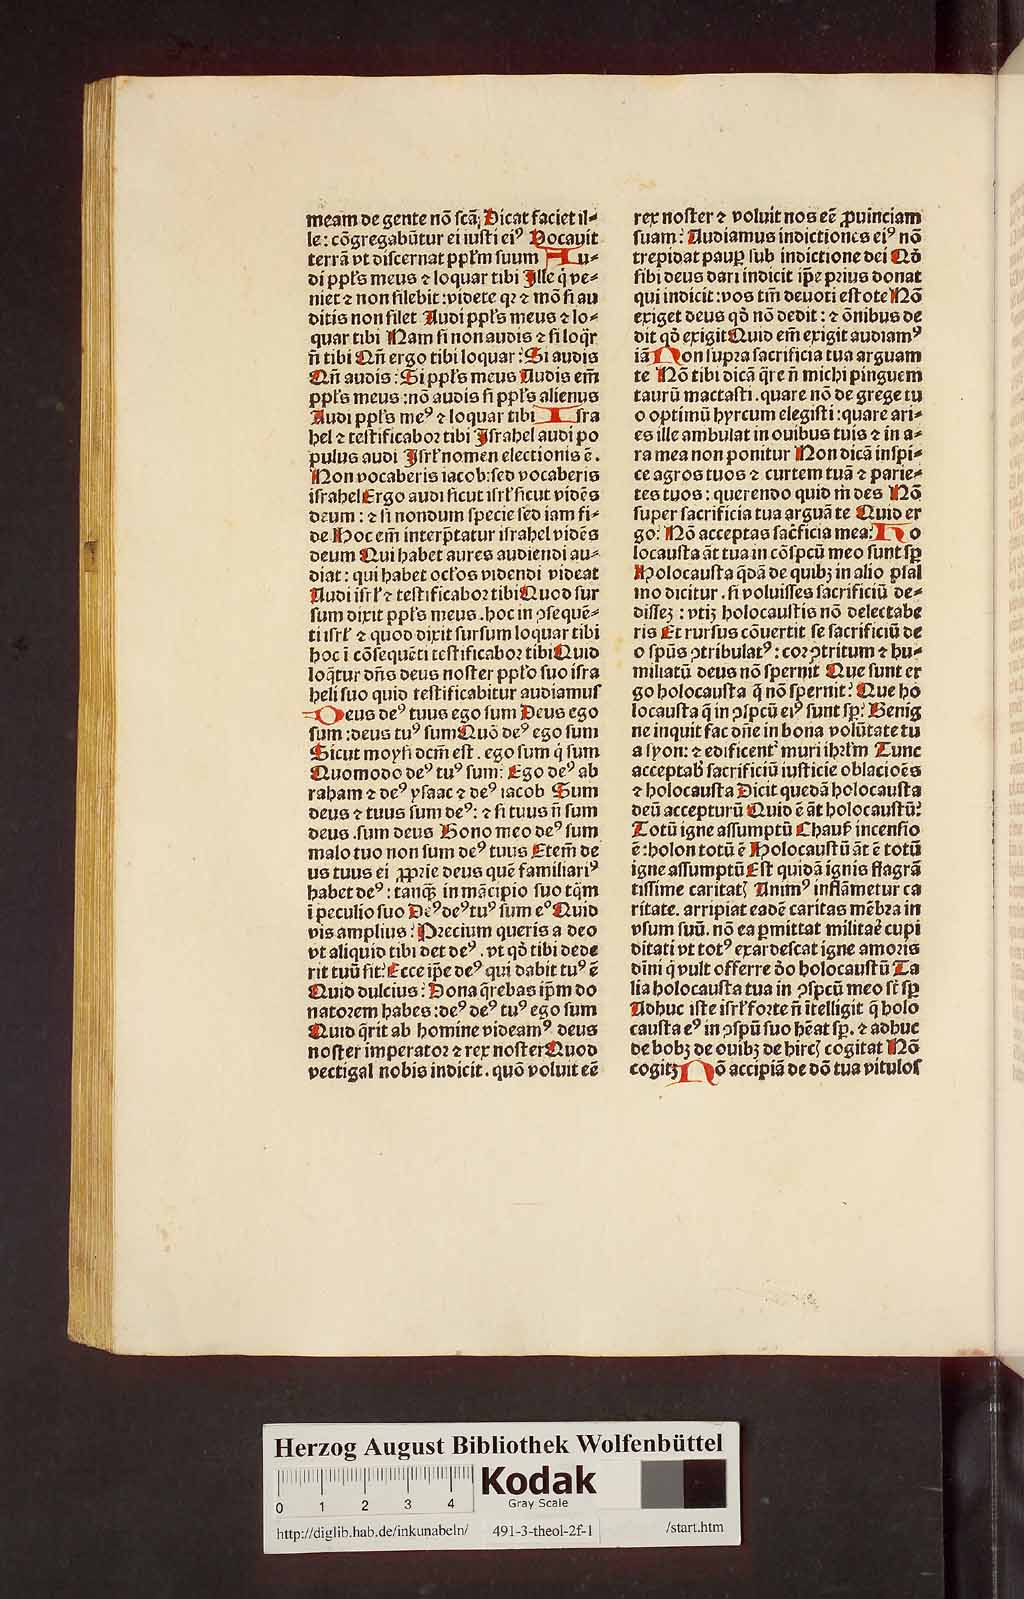 meam de gente nō ſcā; Dicat faciet il⸗
le: cōgregabūtur ei iuſti eiꝰ Vocauit
terrā vt diſcernat ppłm ſuum Au⸗
di ppłs meus ⁊ loquar tibi Ille q̇ ve⸗
niet ⁊ non ſilebit: videte qꝛ ⁊ mō ſi au
ditis non ſilet Audi ppłs meus ⁊ lo⸗
quar tibi Nam ſi non audis ⁊ ſi loqr̄
n̄ tibi Qn̄ ergo tibi loquar: Si audis
Qn̄ audis: Si ppłs meus Audis em̄
ppłs meus: nō audis ſi ppłs alienus
Audi ppłs meꝰ ⁊ loquar tibi Iſra
hel ⁊ teſtificaboꝛ tibi Iſrahel audi po
pulus audi Iſrł nomen electionis ē.
Non vocaberis iacob: ſed vocaberis
iſrahel Ergo audi ſicut iſrł ſicut vidēs
deum: ⁊ ſi nondum ſpecie ſed iam fi⸗
de Hoc em̄ interp̄tatur iſrahel vidēs
deum Qui habet aures audiendi au⸗
diat: qui habet ocłos videndi videat
Audi iſrł ⁊ teſtificaboꝛ tibi Quod ſur
ſum dixit ppłs meus. hoc in ꝯſequē⸗
ti iſrł ⁊ quod dixit ſurſum loquar tibi
hoc ī cōſequēti teſtificaboꝛ tibi Quid
loq̄tur dn̄s deus noſter ppło ſuo iſra
heli ſuo quid teſtificabitur audiamuſ
Deus deꝰ tuus ego ſum Deus ego
ſum: deus tuꝰ ſum Quō deꝰ ego ſum
Sicut moyſi dcm̄ eſt. ego ſum q̇ ſum
Quomodo deꝰ tuꝰ ſum: Ego deꝰ ab
raham ⁊ deꝰ yſaac ⁊ deꝰ iacob Sum
deus ⁊ tuus ſum deꝰ: ⁊ ſi tuus n̄ ſum
deus. ſum deus Bono meo deꝰ ſum
malo tuo non ſum deꝰ tuus Etem̄ de
us tuus ei ꝓprie deus quē familiariꝰ
habet deꝰ: tanqꝫ in mācipio ſuo tq̄m
ī peculio ſuo Deꝰ deꝰ tuꝰ ſum eꝰ Quid
vis amplius: Precium queris a deo
vt aliquid tibi det deꝰ. vt qð tibi dede
rit tuū ſit: Ecce ip̄e deꝰ qui dabit tuꝰ ē
Quid dulcius: Dona q̄rebas ip̄m do
natorem habes: deꝰ deꝰ tuꝰ ego ſum
Quid q̄rit ab homine videamꝰ deus
noſter imperatoꝛ ⁊ rex noſter Quod
vectigal nobis indicit. quō voluit eē
rex noſter ⁊ voluit nos eē ꝓuinciam
ſuam: Audiamus indictiones eiꝰ nō
trepidat pauꝑ ſub indictione dei Qð
ſibi deus dari indicit ip̄e prius donat
qui indicit: vos tm̄ deuoti eſtote Nō
exiget deus qð nō dedit: ⁊ ōnibus de
dit qð exigit Quid em̄ exigit audiamꝰ
iā Non ſupꝛa ſacrificia tua arguam
te Nō tibi dicā q̄re n̄ michi pinguem
taurū mactaſti. quare nō de grege tu
o optimū hyrcum elegiſti: quare ari⸗
es ille ambulat in ouibus tuis ⁊ in a⸗
ra mea non ponitur Non dicā inſpi⸗
ce agros tuos ⁊ curtem tuā ⁊ parie⸗
tes tuos: querendo quid m̄ des Nō
ſuper ſacrificia tua arguā te Quid er
go: Nō acceptas ſac̄ficia mea: Ho
locauſta āt tua in cōſpcū meo ſunt ſꝑ
Holocauſta q̄dā de quibꝫ in alio pſal
mo dicitur. ſi voluiſſes ſacrificiū de⸗
diſſeꝫ: vtiꝫ holocauſtis nō delectabe
ris Et rurſus cōuertit ſe ſacrificiū de
o ſpūs ꝯtribulatꝰ: coꝛ ꝯtritum ⁊ hu⸗
miliatū deus nō ſpernit Que ſunt er
go holocauſta q̄ nō ſpernit: Que ho
locauſta q̄ in ꝯſpcū eiꝰ ſunt ſꝑ: Benig
ne inquit fac dn̄e in bona volūtate tu
a ſyon: ⁊ edificentᷣ muri ihrłm Tunc
acceptab̄ ſacrificiū iuſticie oblacioēs
⁊ holocauſta Dicit quedā holocauſta
deū accepturū Quid ē āt holocauſtū:
Totū igne aſſumptū Chauſꝭ incenſio
ē: holon totū ē Holocauſtū āt ē totū
igne aſſumptū Eſt quidā ignis fflagrā
tiſſime caritatꝭ Animꝰ inflāmetur ca
ritate. arripiat eadē caritas mēbra in
vſum ſuū. nō ea ꝑmittat militae᷑ cupi
ditati vt totꝰ exardeſcat igne amoris
dini q̇ vult offerre ðo holocauſtū Ta
lia holocauſta tua in ꝯſpcū meo ſt̄ ſꝑ
Adhuc iſte iſrł forte n̄ ītelligit q̄ holo
cauſta eꝰ in ꝯſpū ſuo hēat ſꝑ. ⁊ adhuc
de bobꝫ de ouibꝫ de hircꝭ cogitat Nō
cogitꝫ Nō accipiā de dō tua vitulos
Herzog August Bibliothek Wolfenbüttel
0 1 2 3 4
Kodak
Gray Scale
http://diglib.hab.de/inkunabeln/ 491-3-theol-2f-1 /start.htm